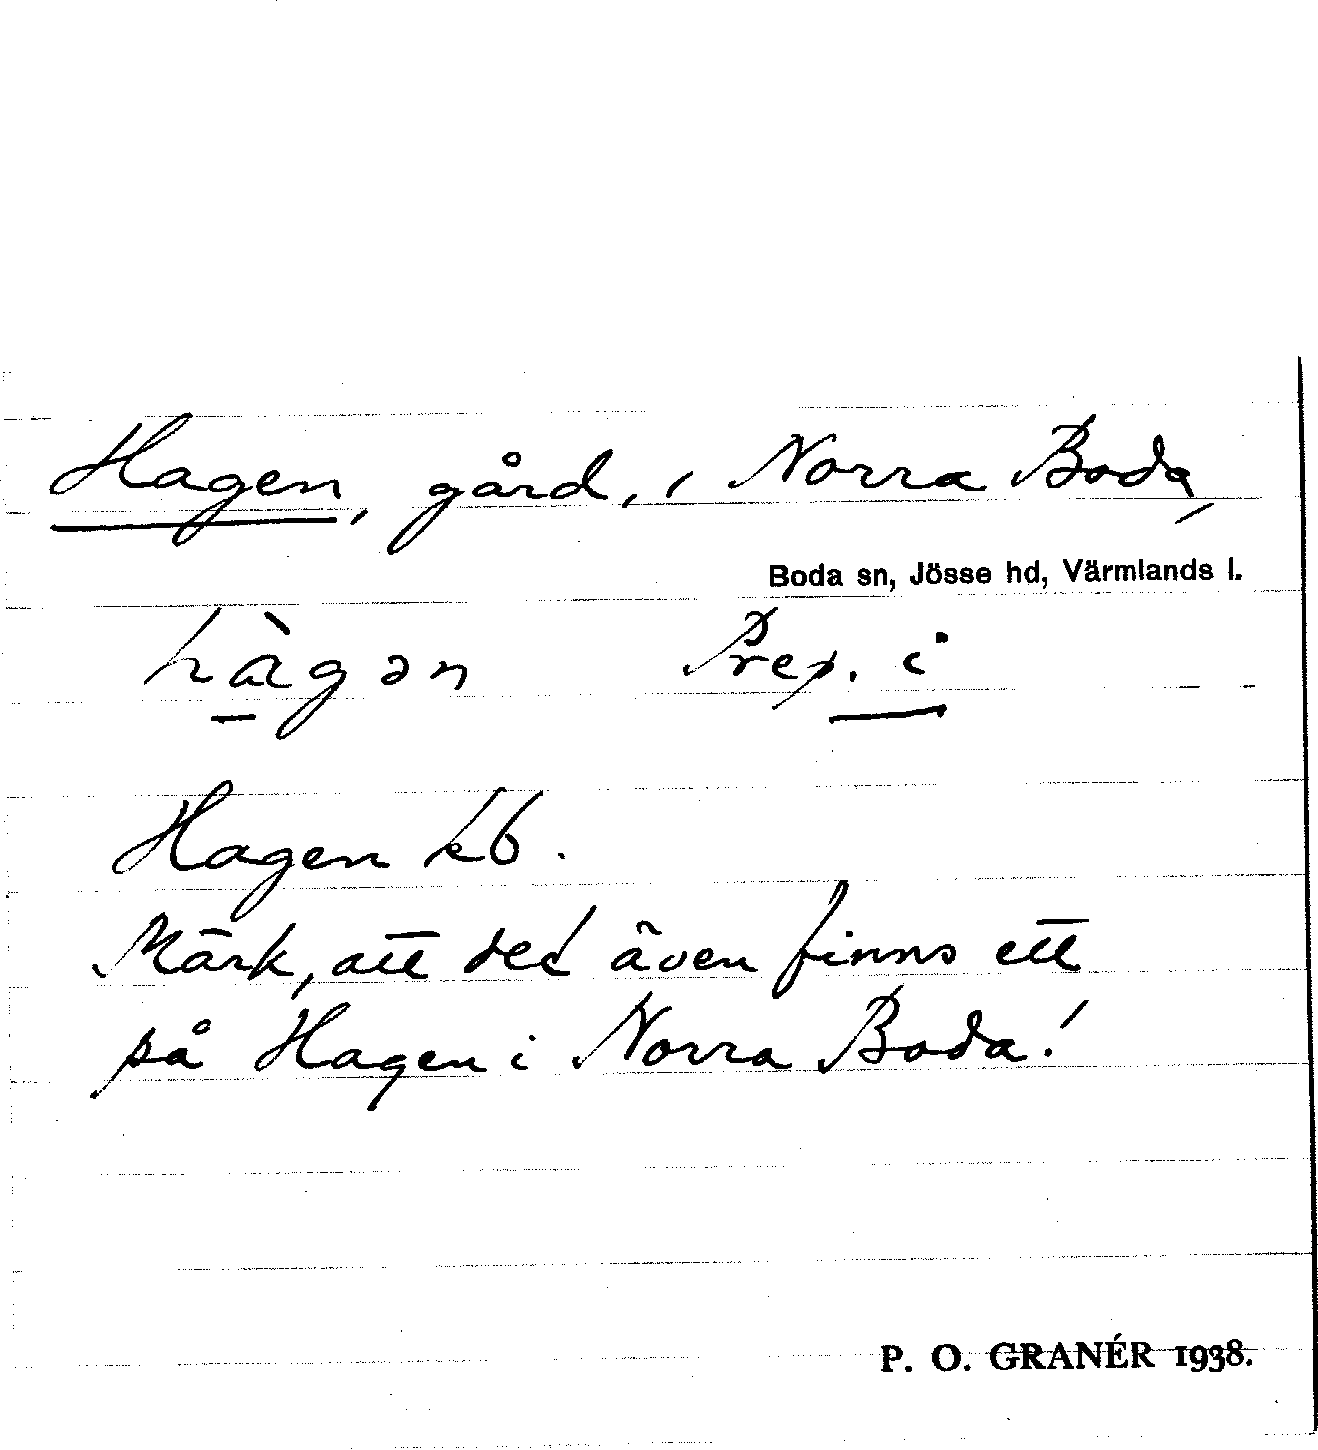 Hagen, gård, i Norra Boda,
Boda sn, Jösse hd, Värmlands l.
hàgən Prep. i
Hagen kb.
Märk, att det även finns ett
på Hagen i Norra Boda!
P. O. GRANÉR 1938.